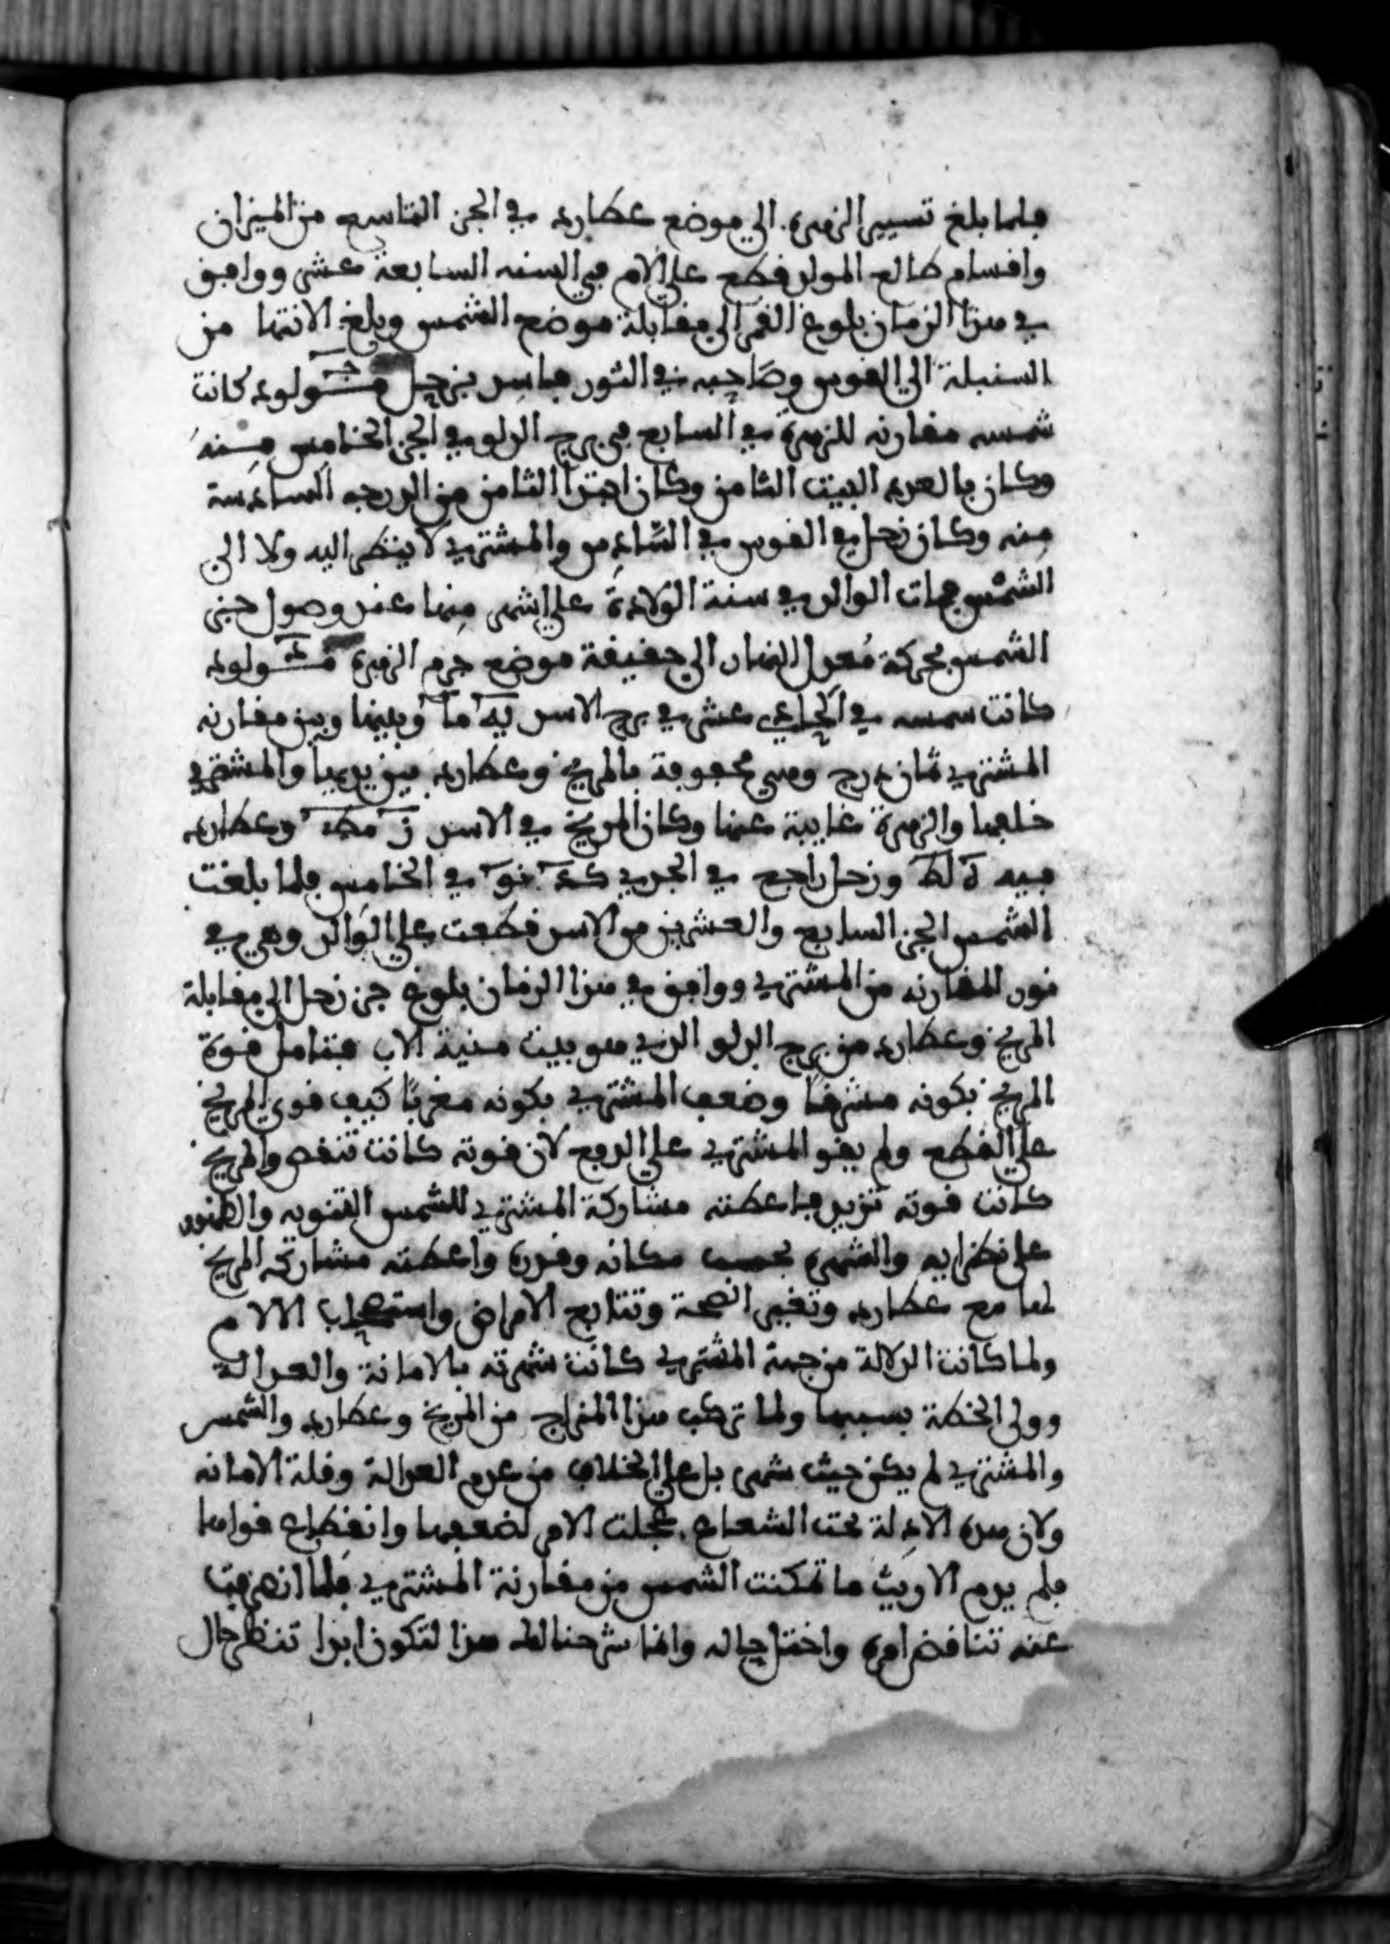 فلما بلغ تسيير الزهره الي موضع عطارد في الجزء التاسع من الميزان
واقسام طالع المولد قطع علي الام في السنه السابعة عشر ووافق
في هذا الزمان بلوغ القمر الي مقابلة موضع الشمس وبلغ الانتها من
السنبلة الي القوس وصاحبه في الثور فاسد بزحل مولود كانت
شمسه مقارنه للزهرة في السابع في برج الدلو في الجزء الخامس منه
وكان بالعدد البيت الثامن وكان ابتدا الثامن من الدرجه السادسة
منه وكان زحل في القوس في السادس والمشتري لا ينظر اليه ولا الي
الشمس فمات الوالد في سنة الولادة علي اشهر منها عند وصول جزء
الشمس بحركة مُعدل النهار الي حقيقة موضع جرم الزهرة مولود
كانت شمسه في الحادي عشر في برج الاسد يه ما وبينها وبين مقارنه
المشتري ثمان درج وهي محفوفة بالمريخ وعطارد بين يديها والمشتري
خلفها والزهرة غايبة عنها وكان المريخ في الاسد ز مط وعطارد
فيه ة لط وزحل راجع في الجدي كد نو في الخامس فلما بلغت
الشمس الجزء السابع والعشرين من الاسد قطعت علي الوالد وهي في
نور المقارنه من المشتري ووافق في هذا الزمان بلوغ جزء زحل الي مقابلة
المريخ وعطارد من برج الدلو الذي هو بيت منية الاب فتامل قوة
المريخ بكونه مشرقا وضعف المشتري بكونه مغربًا كيف قوي المريخ
علي القطع ولم يقو المشتري علي الدفع لان قوته كانت تنقص والمريخ
كانت قوته تزيد فاعطته مشاركة المشتري للشمس التنويه والظهور
علي نظرايه والشهره بحسب مكانه وقدره واعطته مشاركه المريخ
لها مع عطارد وتغير الصحة وتتابع الامراض واستصحاب الالام
ولما كانت الدلالة من جهة المشتري كانت شهرته بالامانة والعدالة
وولي الخطة بسببها ولما تركب هذا المزاج من المريخ وعطارد والشمس
والمشتري لم يكن حيث شهر بل علي الخلاف من عدم العدالة وقلة الامانه
ولان هذه الادلة تحت الشعاع عجلت الامر لضعفها وانقطاع قواها
فلم يدم الا ريث ما تمكنت الشمس من مقارنة المشتري فلما انصرفت
عنه تناقض امره واختل حاله وانما شرحنا لك هذا لتكون ابدا تنظر حال